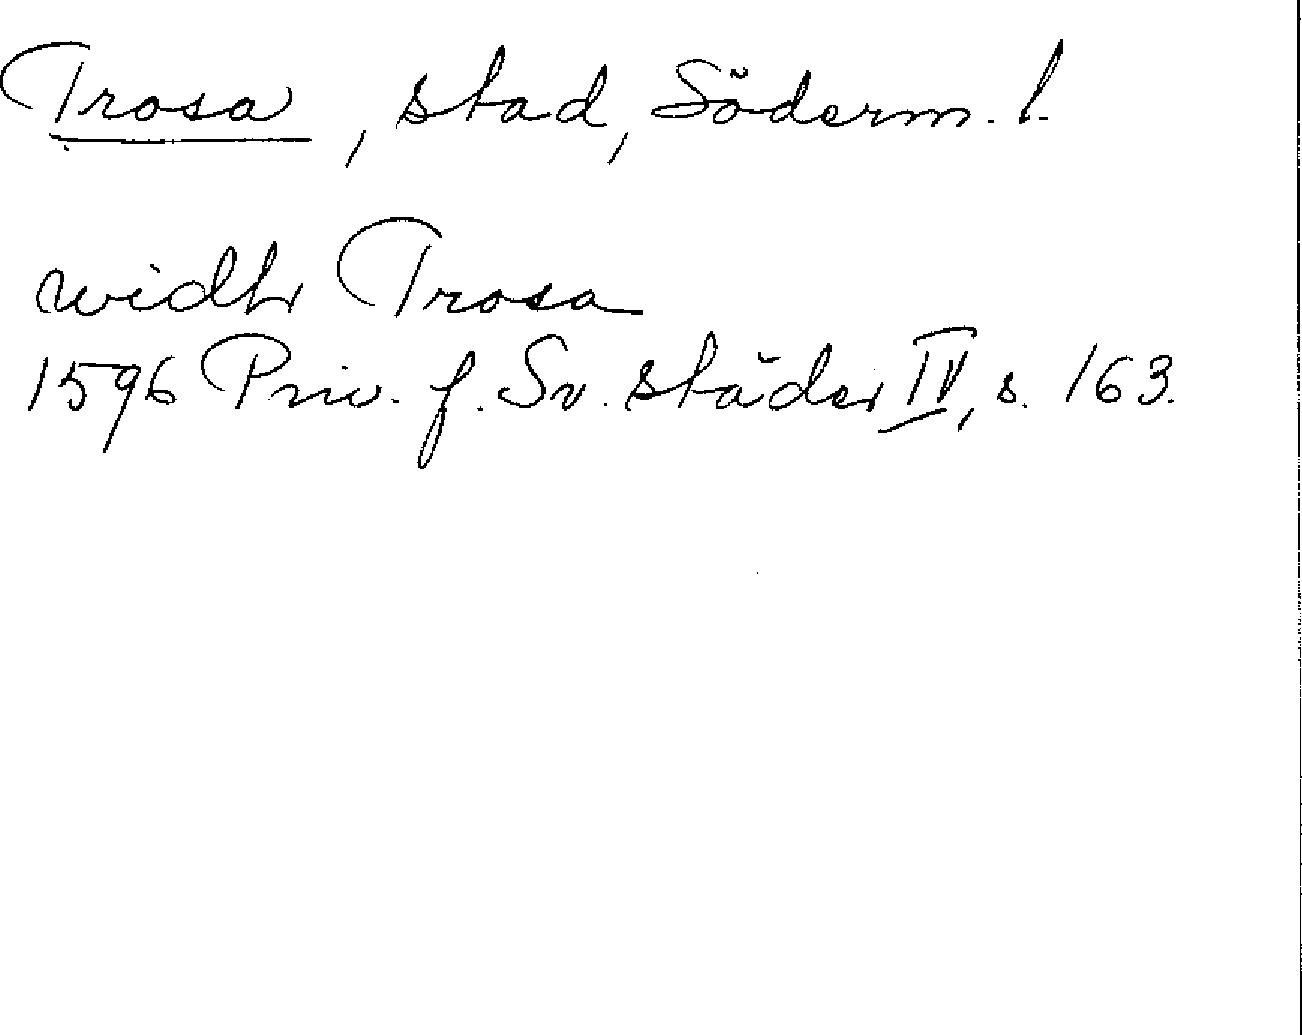 Trosa, stad, Söderm. l.
widh Trosa
1596 Priv. f. Sv. städer IV, s. 163.